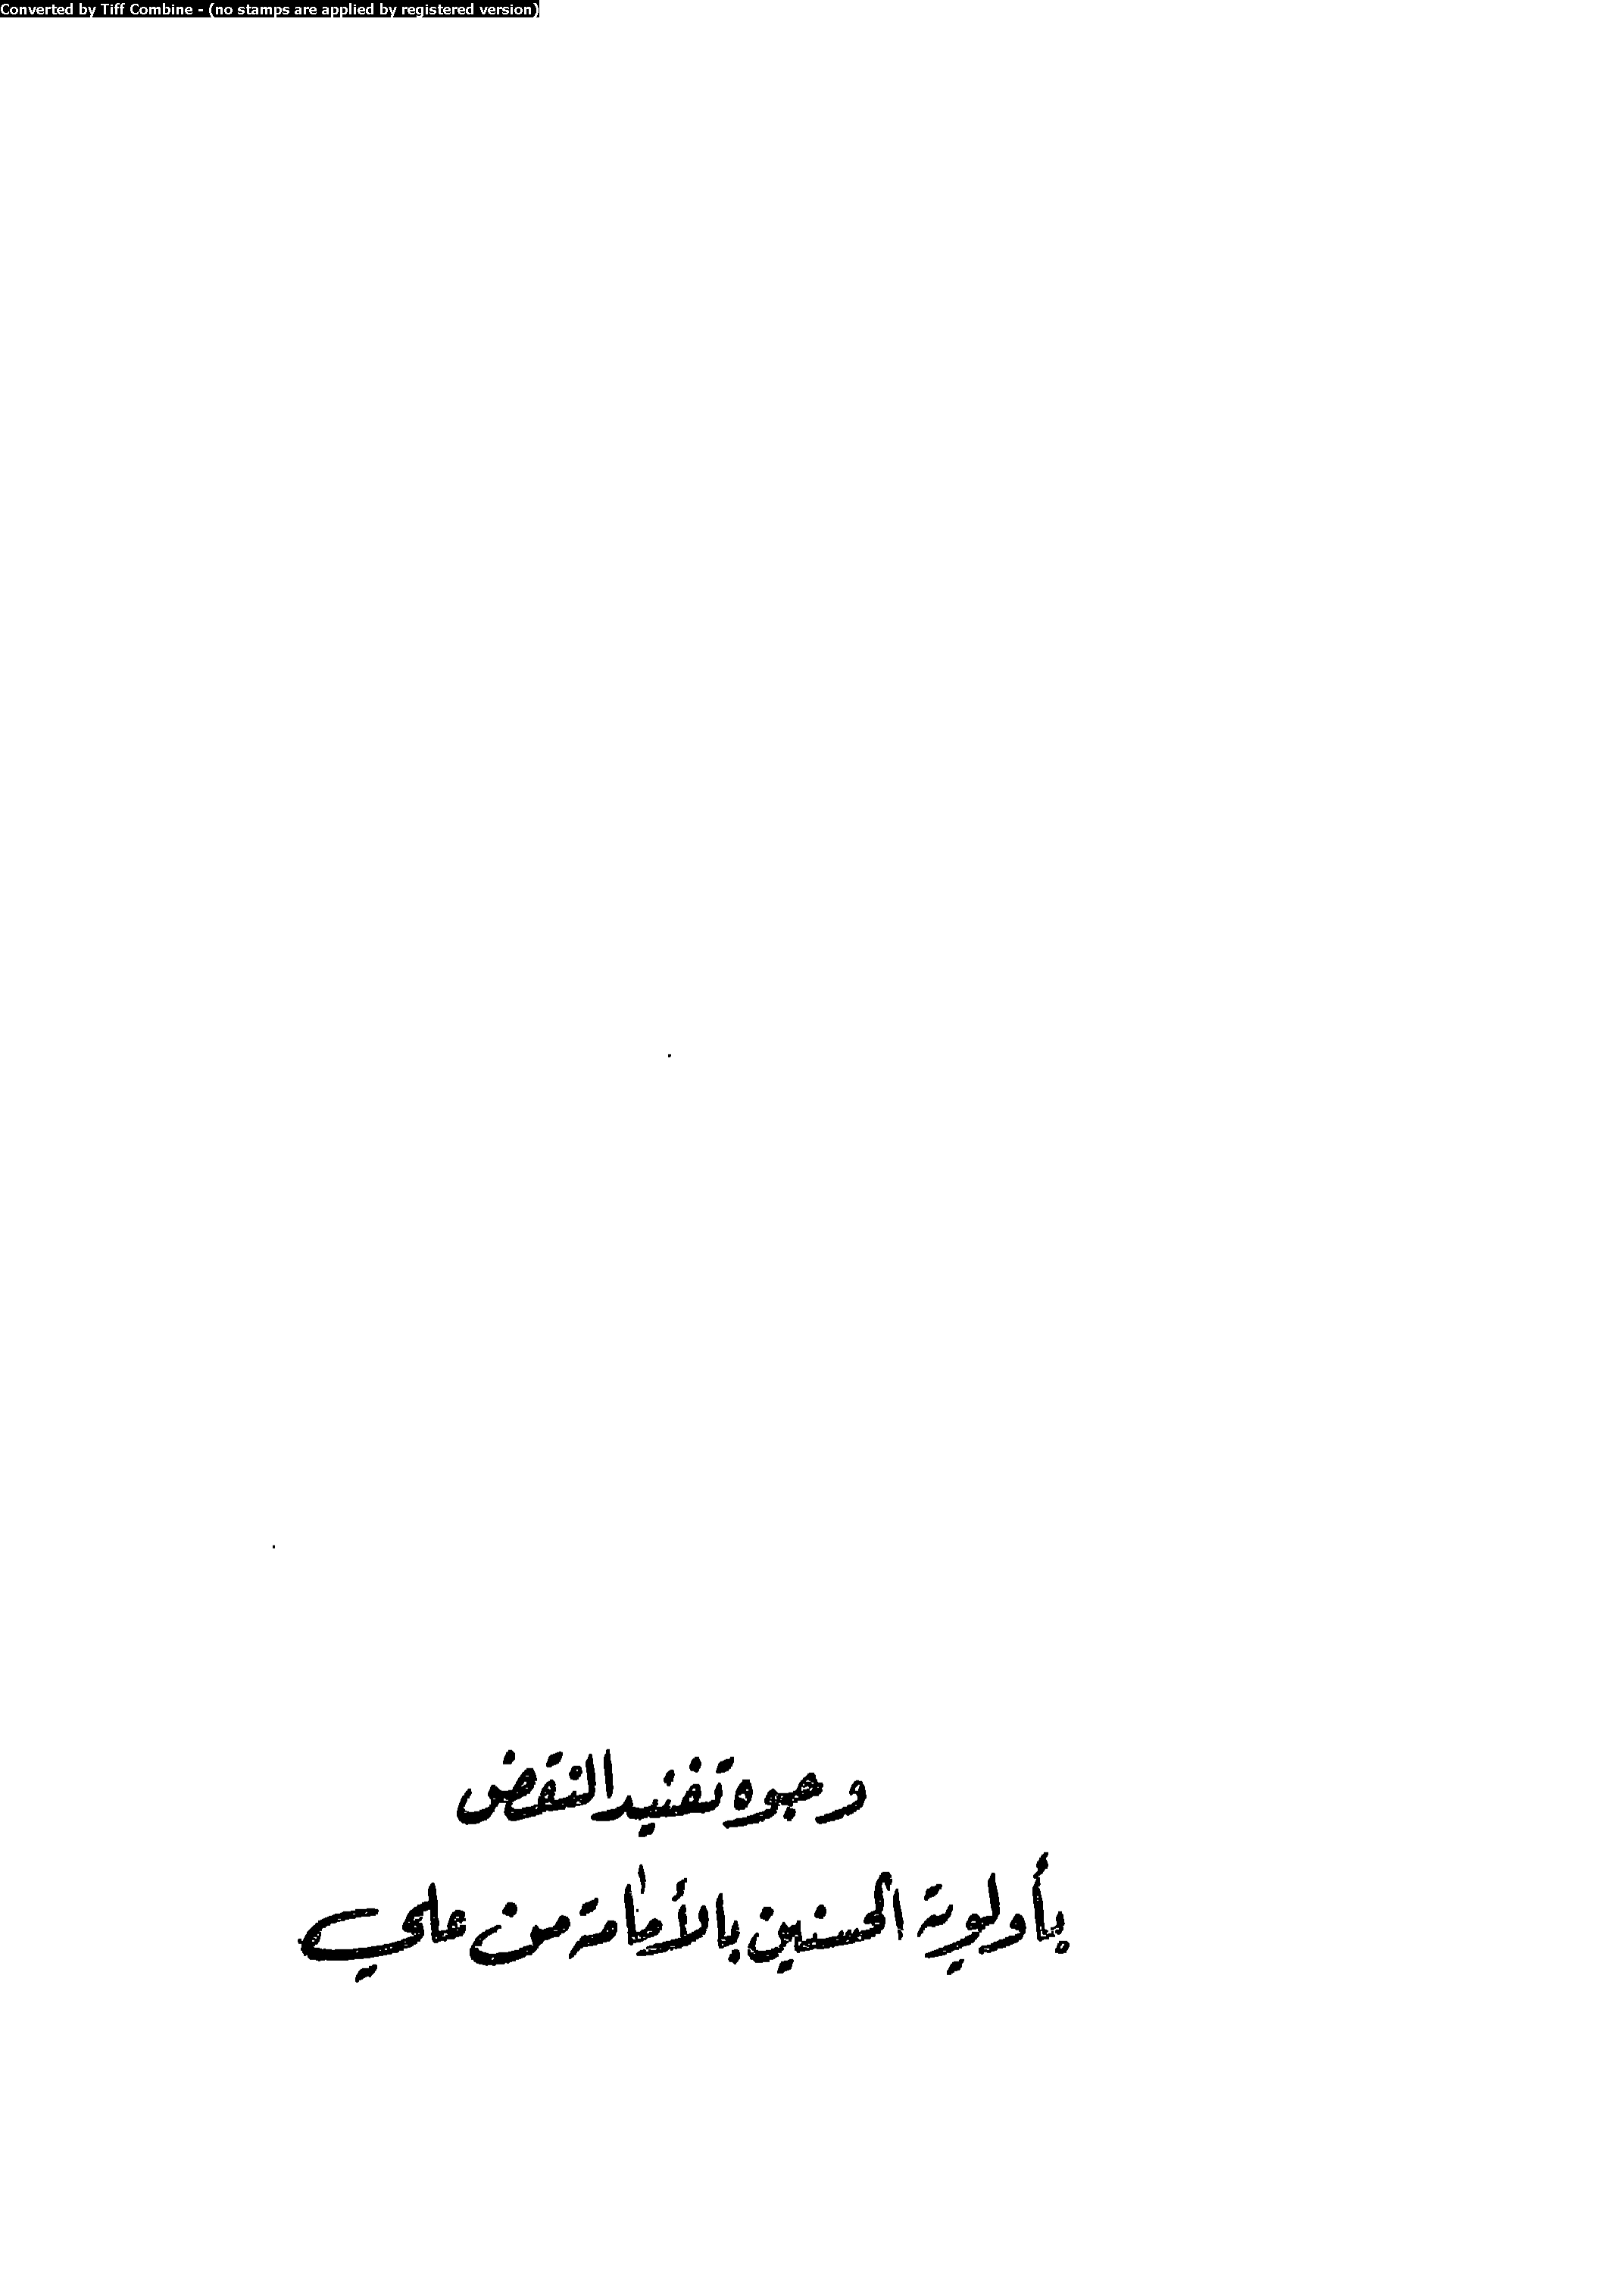 Converted by Tiff Combine - (no stamps are applied by registered version)
وجوه تفنيد النقض
بأولوية الحسنين بالأمامة من علي